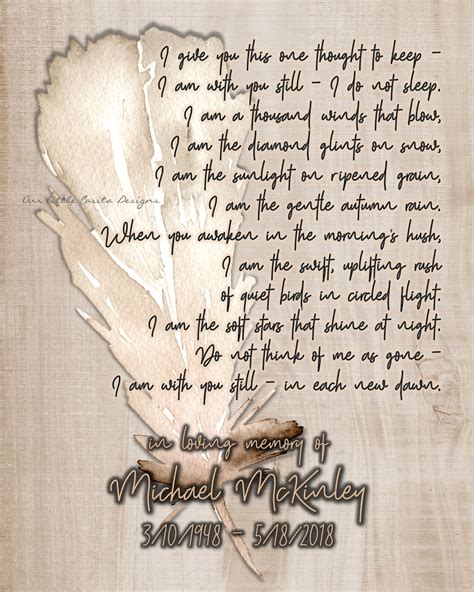 I give you this one thought to keep –
I am with you still – I do not sleep.
I am a thousand winds that blow,
I am the diamond glints on snow,
I am the sunlight on ripened grain,
I am the gentle autumn rain.
Our Little Casita Designs
When you awaken in the morning's hush,
I am the swift, uplifting rush
of quiet birds in circled flight.
I am the soft stars that shine at night.
Do not think of me as gone –
I am with you still – in each new dawn.
in loving memory of
Michael McKinley
3/10/1948 – 5/18/2018